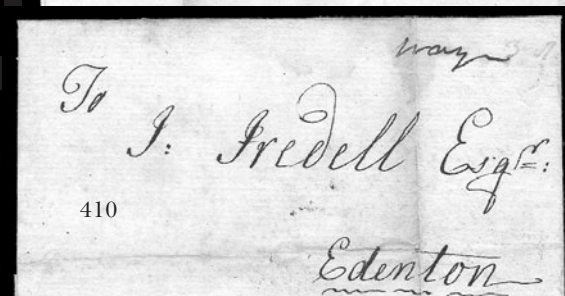 way
To
J: Iredell Esqr:
410
Edenton